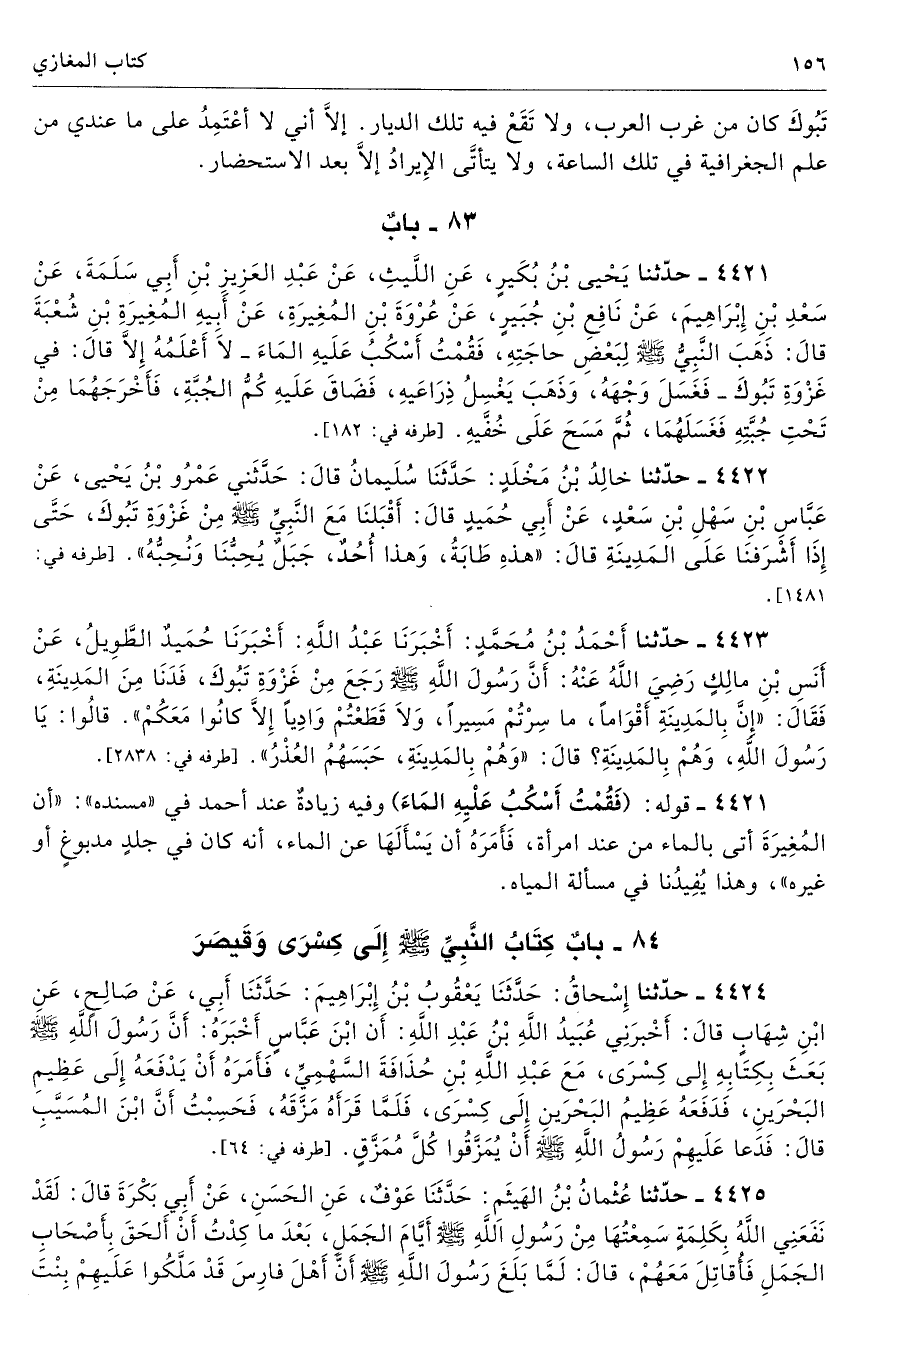 ١٥٦ كتاب المغازي
تَبُوكَ كان من غرب العرب، ولا تَقَعْ فيه تلك الديار. إلاَّ أني لا أعْتَمِدُ على ما عندي من
علم الجغرافية في تلك الساعة، ولا يتأتَّى الإِيرادُ إلاَّ بعد الاستحضار.
٨٣ ـ بابٌ
٤٤٢١ ـ حدّثنا يَحْيى بْنُ بُكَيرٍ، عَنِ اللَّيثِ، عَنْ عَبْدِ العَزِيزِ بْنِ أَبِي سَلَمَةَ، عَنْ
سَعْدِ بْنِ إِبْرَاهِيمَ، عَنْ نَافِعِ بْنِ جُبَيرٍ، عَنْ عُرْوَةَ بْنِ المُغِيرَةِ، عَنْ أَبِيهِ المُغِيرَةِ بْنِ شُعْبَةَ
قالَ: ذَهَبَ النَّبِيُّ ﷺ لِبَعْضِ حاجَتِهِ، فَقُمْتُ أَسْكُبُ عَلَيهِ المَاءَ ـ لاَ أَعْلَمُهُ إِلاَّ قالَ: في
غَزْوَةِ تَبُوكَ ـ فَغَسَلَ وَجْهَهُ، وَذَهَبَ يَغْسِلُ ذِرَاعَيهِ، فَضَاقَ عَلَيهِ كُمُّ الجُبَّةِ، فَأَخْرَجَهُمَا مِنْ
تَحْتِ جُبَّتِهِ فَغَسَلَهُمَا، ثُمَّ مَسَحَ عَلَى خُفَّيهِ. [طرفه في: ١٨٢].
٤٤٢٢ ـ حدّثنا خالِدُ بْنُ مَخْلَدٍ: حَدَّثَنَا سُلَيمانُ قالَ: حَدَّثَني عَمْرُو بْنُ يَحْيى، عَنْ
عَبَّاسِ بْنِ سَهْلِ بْنِ سَعْدٍ، عَنْ أَبِي حُمَيدٍ قالَ: أَقْبَلنَا مَعَ النَّبِيِّ ﷺ مِنْ غَزْوَةِ تَبُوكَ، حَتَّى
إِذَا أَشْرَفنَا عَلَى المَدِينَةِ قالَ: «هذهِ طَابَةُ، وَهذا أُحُدٌ، جَبَلٌ يُحِبُّنَا وَنُحِبُّهُ». [طرفه في:
١٤٨١].
٤٤٢٣ ـ حدّثنا أَحْمَدُ بْنُ مُحَمَّدٍ: أَخْبَرَنَا عَبْدُ اللَّهِ: أَخْبَرَنَا حُمَيدٌ الطَّوِيلُ، عَنْ
أَنَسِ بْنِ مالِكٍ رَضِيَ اللَّهُ عَنْهُ: أَنَّ رَسُولَ اللَّهِ ﷺ رَجَعَ مِنْ غَزْوَةِ تَبُوكَ، فَدَنَا مِنَ المَدِينَةِ،
فَقَالَ: «إِنَّ بِالمَدِينَةِ أَقْوَاماً، ما سِرْتُمْ مَسِيراً، وَلاَ قَطَعْتُمْ وَادِياً إِلاَّ كانُوا مَعَكُمْ». قالُوا: يَا
رَسُولَ اللَّهِ، وَهُمْ بِالمَدِينَةِ؟ قالَ: «وَهُمْ بِالمَدِينَةِ، حَبَسَهُمُ العُذْرُ». [طرفه في: ٢٨٣٨].
٤٤٢١ ـ قوله: (فَقُمْتُ أَسْكُبُ عَلَيْهِ المَاءَ) وفيه زيادةٌ عند أحمد في «مسنده»: «أن
المُغِيرَةَ أتى بالماء من عند امرأة، فَأَمَرَهُ أن يَسْأَلَهَا عن الماء، أنه كان في جلدٍ مدبوغٍ أو
غيره»، وهذا يُفِيدُنا في مسألة المياه.
٨٤ ـ بابُ كِتَابُ النَّبِيِّ ﷺ إِلَى كِسْرَى وَقَيصَرَ
٤٤٢٤ ـ حدّثنا إِسْحاقُ: حَدَّثَنَا يَعْقُوبُ بْنُ إِبْرَاهِيمَ: حَدَّثَنَا أَبِي، عَنْ صَالِحٍ، عَنِ
ابْنِ شِهَابٍ قالَ: أَخْبَرَنِي عُبَيدُ اللَّهِ بْنُ عَبْدِ اللَّهِ: أَن ابْنَ عَبَّاسٍ أَخْبَرَهُ: أَنَّ رَسُولَ اللَّهِ ﷺ
بَعَثَ بِكِتَابِهِ إِلى كِسْرَى، مَعَ عَبْدِ اللَّهِ بْنِ حُذَافَةَ السَّهْمِيِّ، فَأَمَرَهُ أَنْ يَدْفَعَهُ إِلَى عَظِيمِ
البَحْرَينِ، فَدَفَعَهُ عَظِيمُ البَحْرَينِ إِلَى كِسْرَى، فَلَمَّا قَرَأَهُ مَزَّقَهُ، فَحَسِبْتُ أَنَّ ابْنَ المُسَيَّبِ
قالَ: فَدَعا عَلَيهِمْ رَسُولُ اللَّهِ ﷺ أَنْ يُمَزَّقُوا كُلَّ مُمَزَّقٍ. [طرفه في: ٦٤].
٤٤٢٥ ـ حدّثنا عُثْمانُ بْنُ الهَيثَمِ: حَدَّثَنَا عَوْفٌ، عَنِ الحَسَنِ، عَنْ أَبِي بَكْرَةَ قالَ: لَقَدْ
نَفَعَنِي اللَّهُ بِكَلِمَةٍ سَمِعْتُهَا مِنْ رَسُولِ اللَّهِ ﷺ أَيَّامَ الجَمَلِ، بَعْدَ ما كِدْتُ أَنْ أَلحَقَ بِأَصْحَابِ
الجَمَلِ فَأُقَاتِلَ مَعَهُمْ، قالَ: لَمَّا بَلَغَ رَسُولَ اللَّهِ ﷺ أَنَّ أَهْلَ فارِسَ قَدْ مَلَّكُوا عَلَيهِمْ بِنْتَ